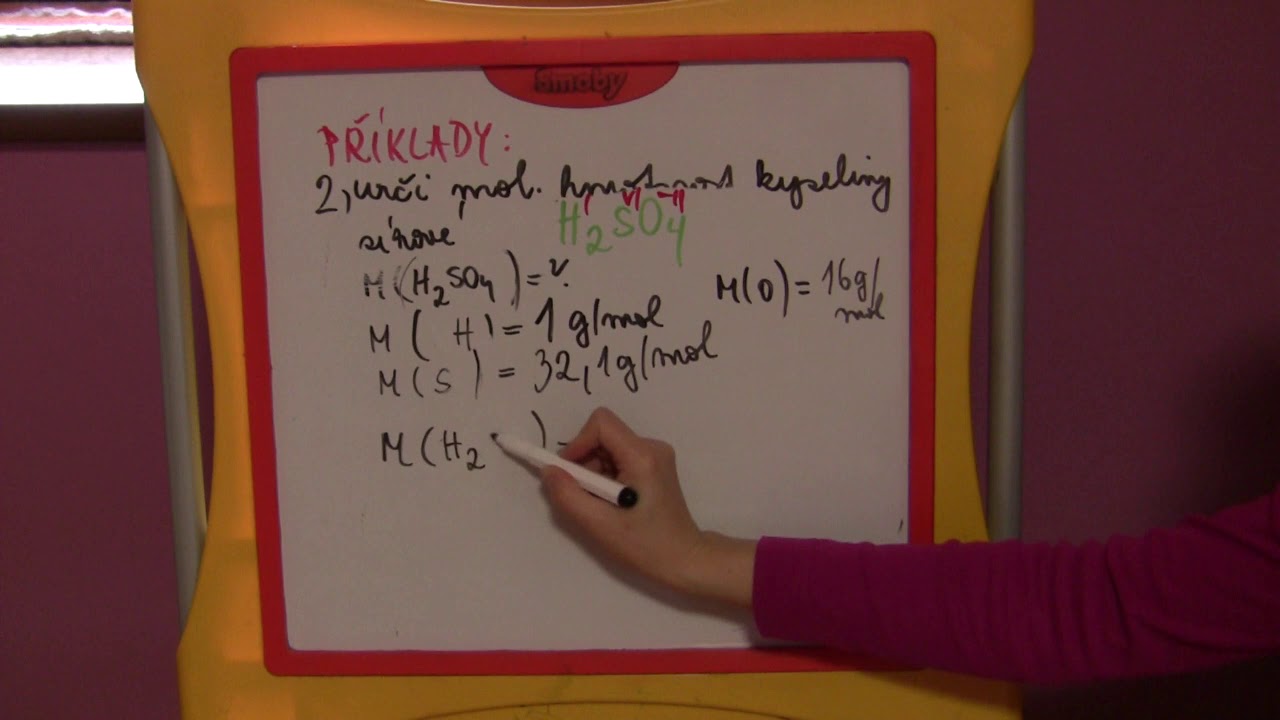 Smoby
PŘÍKLADY:
2, urči mol. hmotnost kyseliny
sírove
I VI -II
H2SO4
M(H2SO4) = ?
M(O) = 16g/
mol
M( H) = 1 g/mol
M(S) = 32,1g/mol
M(H2 ) =